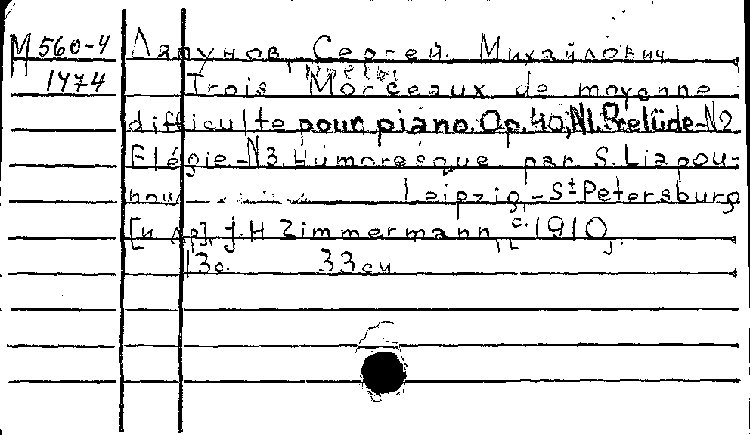 М 560-4 Ляпунов, Сергей Михайлович
1474 Trois Morceaux de moyenne
difficulte pour piano. Op. 40, N1. Prelüde-N2
Elégie-N3 Humoresque par S. Liapou-
now Leipzig,-St Petersburg
[и др], J. H Zimmermann, c. 1910.
13с. 33см